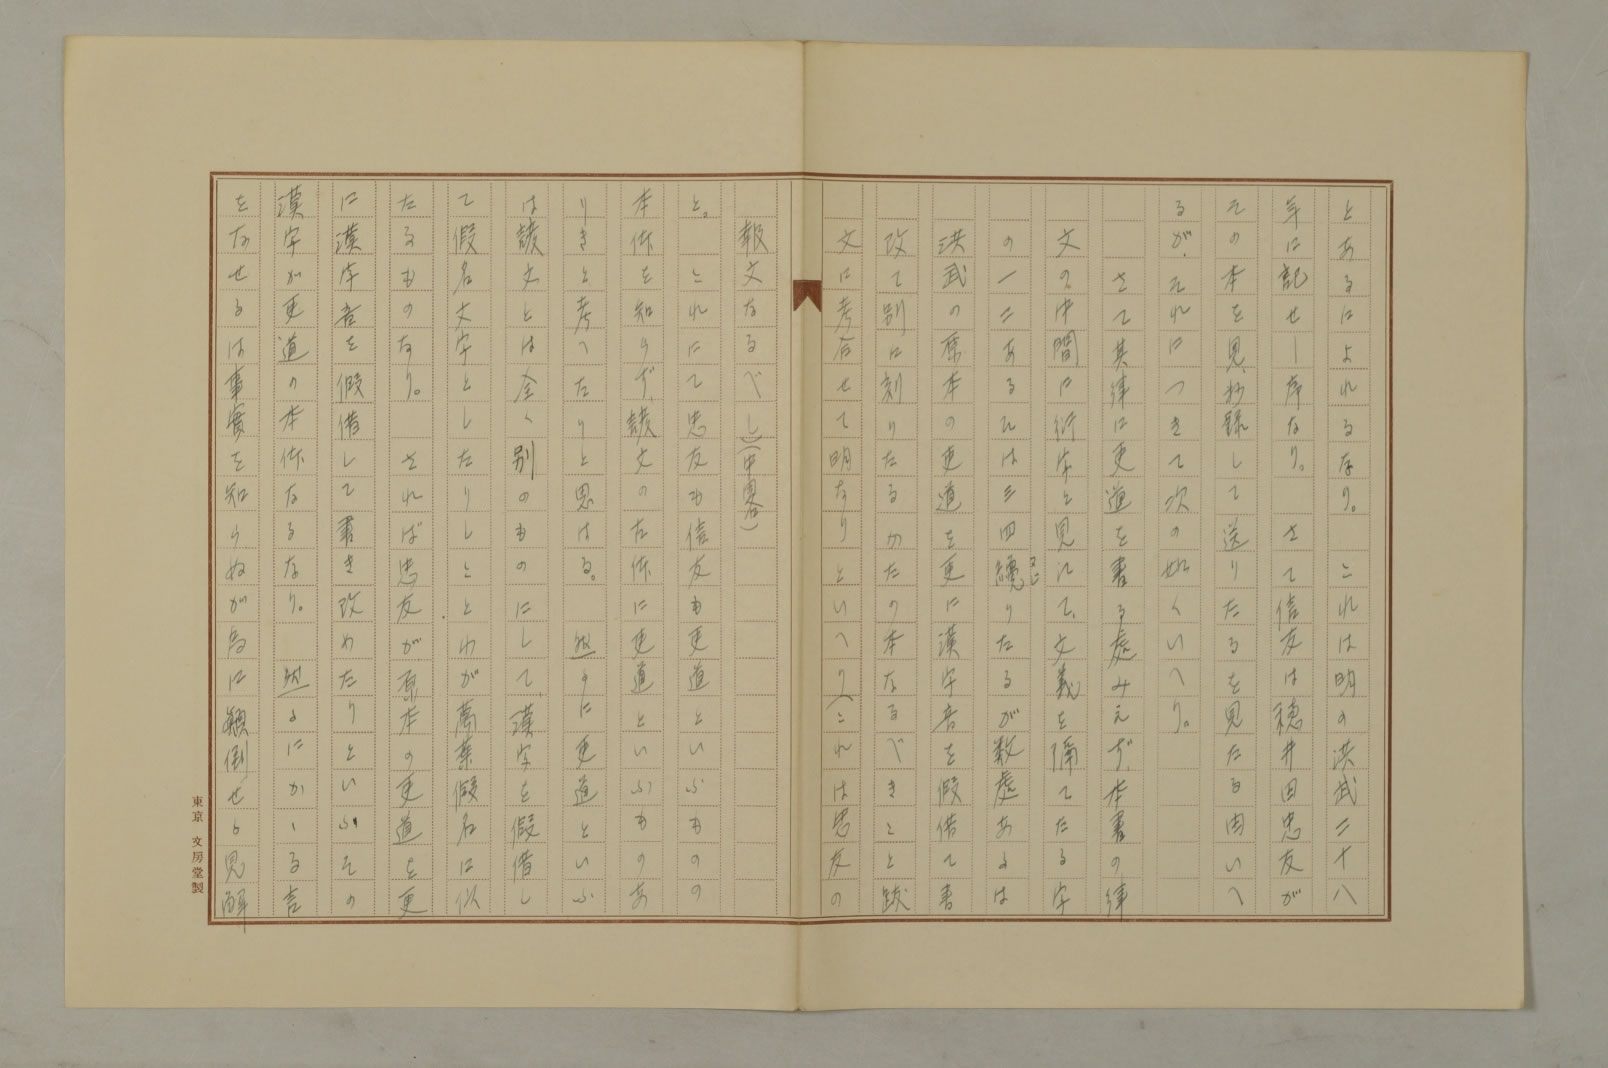 とあるによれるなり。　これは明の洪武二十八
年に記せし序なり。　さて信友は穂井田忠友が
その本を見、抄録して送りたるを見たる由いへ
るが、それにつきて次の如くいへり。
さて其律に吏道を書る處みえず、本書の律
文の中間に衍字と見れて、文義を隔てたる字
の一二あるひは三四攙りたるが数處あるは
洪武の原本の吏道を更に漢字音を假借て書
改て別に刻りたるかたの本なるべきこと跋
文に考合せて明なりといへり（これは忠友の
報文なるべし）（中畧）
と。　これにて忠友も信友も吏道といふものの
本体を知らず、諺文の古体に吏道といふものあ
りきと考へたりと思はる。　然るに吏道といふ
は諺文とは全く別のものにして、漢字を假借し
て假名文字としたりしことわが萬葉假名に似
たるものなり。　されば忠友が原本の吏道を更
に漢字音を假借して書き改めたりといふその
漢字が吏道の本体なるなり。　然るにかゝる言
をなせるは事實を知らぬが為に顚倒せる見解
東京　文房堂製